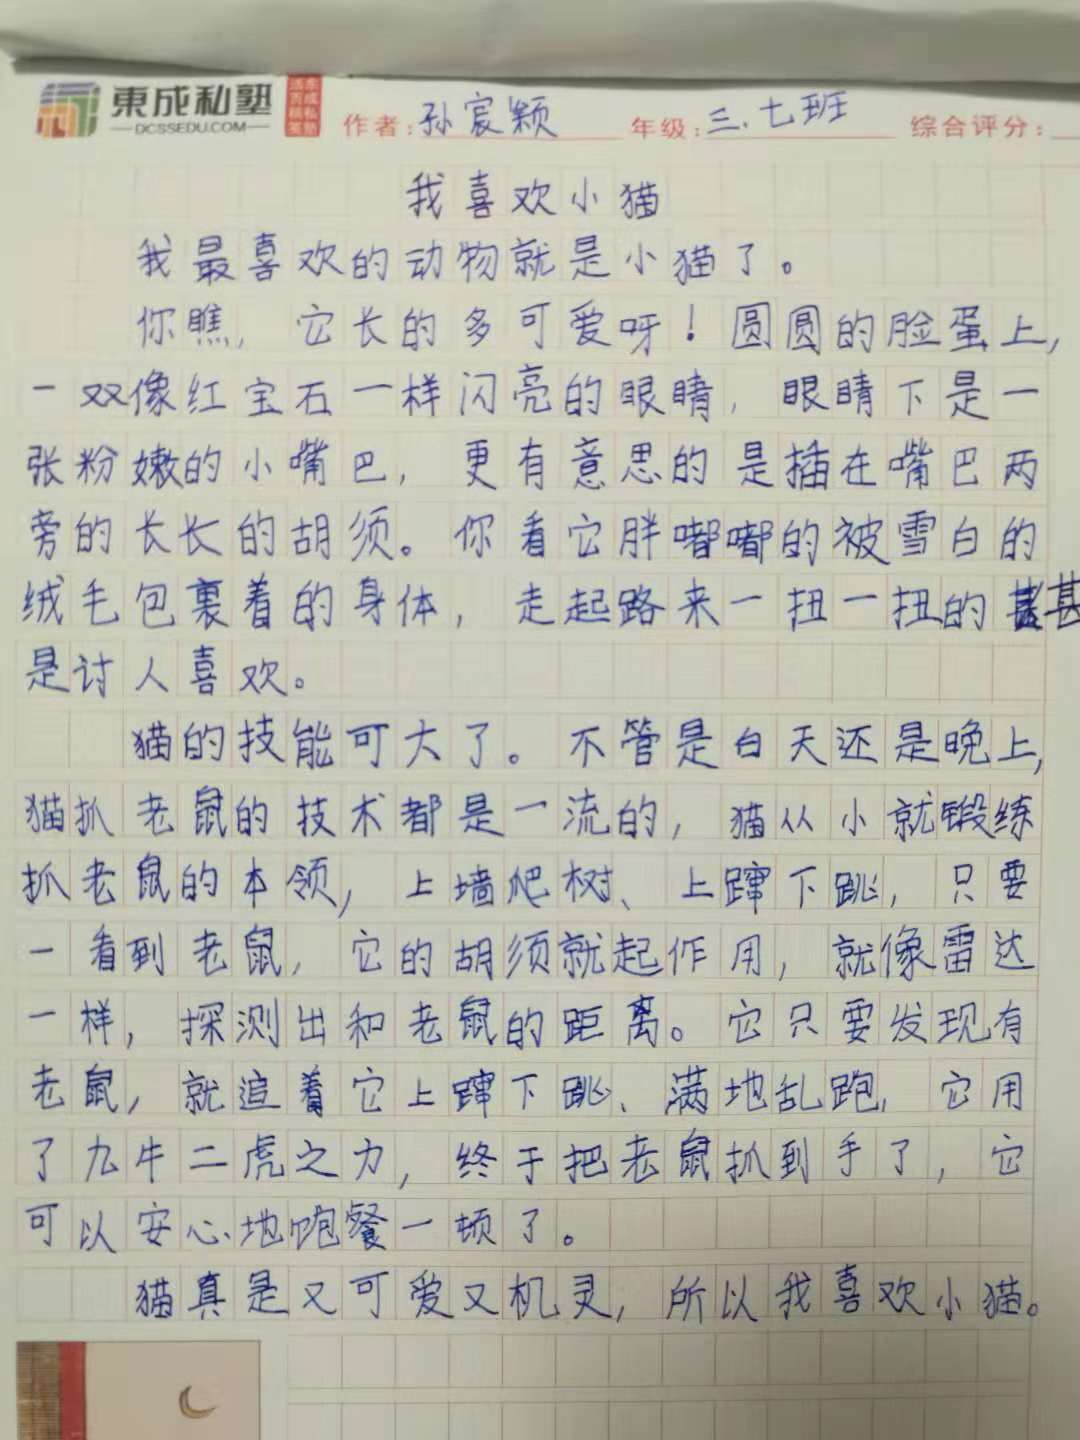 東成私塾
DCSSEDU.COM
作者:孙宸颖 年级:三.七班 综合评分:
我喜欢小猫
我最喜欢的动物就是小猫了。
你瞧，它长的多可爱呀！圆圆的脸蛋上，
一双像红宝石一样闪亮的眼睛，眼睛下是一
张粉嫩的小嘴巴，更有意思的是插在嘴巴两
旁的长长的胡须。你看它胖嘟嘟的被雪白的
绒毛包裹着的身体，走起路来一扭一扭的甚
是讨人喜欢。
猫的技能可大了。不管是白天还是晚上，
猫抓老鼠的技术都是一流的，猫从小就锻练
抓老鼠的本领，上墙爬树、上蹿下跳，只要
一看到老鼠，它的胡须就起作用，就像雷达
一样，探测出和老鼠的距离。它只要发现有
老鼠，就追着它上蹿下跳、满地乱跑，它用
了九牛二虎之力，终于把老鼠抓到手了，它
可以安心地饱餐一顿了。
猫真是又可爱又机灵，所以我喜欢小猫。